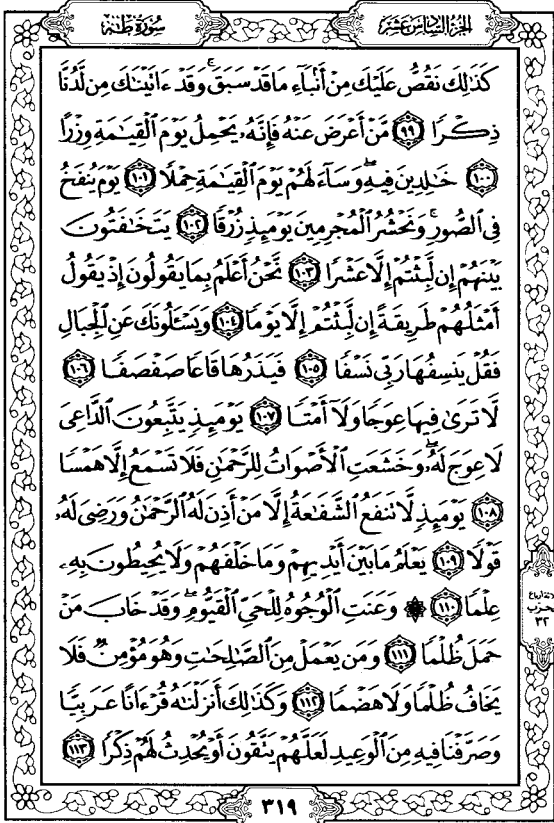 الجزء السادس عشر
سورة طه
كَذَٰلِكَ نَقُصُّ عَلَيْكَ مِنْ أَنۢبَآءِ مَا قَدْ سَبَقَ ۚ وَقَدْ ءَاتَيْنَٰكَ مِن لَّدُنَّا
ذِكْرًا ٩٩ مَّنْ أَعْرَضَ عَنْهُ فَإِنَّهُۥ يَحْمِلُ يَوْمَ ٱلْقِيَٰمَةِ وِزْرًا
١٠٠ خَٰلِدِينَ فِيهِ ۖ وَسَآءَ لَهُمْ يَوْمَ ٱلْقِيَٰمَةِ حِمْلًا ١٠١ يَوْمَ يُنفَخُ
فِى ٱلصُّورِ ۚ وَنَحْشُرُ ٱلْمُجْرِمِينَ يَوْمَئِذٍ زُرْقًا ١٠٢ يَتَخَٰفَتُونَ
بَيْنَهُمْ إِن لَّبِثْتُمْ إِلَّا عَشْرًا ١٠٣ نَّحْنُ أَعْلَمُ بِمَا يَقُولُونَ إِذْ يَقُولُ
أَمْثَلُهُمْ طَرِيقَةً إِن لَّبِثْتُمْ إِلَّا يَوْمًا ١٠٤ وَيَسْـَٔلُونَكَ عَنِ ٱلْجِبَالِ
فَقُلْ يَنسِفُهَا رَبِّى نَسْفًا ١٠٥ فَيَذَرُهَا قَاعًا صَفْصَفًا ١٠٦
لَّا تَرَىٰ فِيهَا عِوَجًا وَلَآ أَمْتًا ١٠٧ يَوْمَئِذٍ يَتَّبِعُونَ ٱلدَّاعِىَ
لَا عِوَجَ لَهُۥ ۖ وَخَشَعَتِ ٱلْأَصْوَاتُ لِلرَّحْمَٰنِ فَلَا تَسْمَعُ إِلَّا هَمْسًا
١٠٨ يَوْمَئِذٍ لَّا تَنفَعُ ٱلشَّفَٰعَةُ إِلَّا مَنْ أَذِنَ لَهُ ٱلرَّحْمَٰنُ وَرَضِىَ لَهُۥ
قَوْلًا ١٠٩ يَعْلَمُ مَا بَيْنَ أَيْدِيهِمْ وَمَا خَلْفَهُمْ وَلَا يُحِيطُونَ بِهِۦ
عِلْمًا ١١٠ ۞ وَعَنَتِ ٱلْوُجُوهُ لِلْحَىِّ ٱلْقَيُّومِ ۖ وَقَدْ خَابَ مَنْ
حَمَلَ ظُلْمًا ١١١ وَمَن يَعْمَلْ مِنَ ٱلصَّٰلِحَٰتِ وَهُوَ مُؤْمِنٌ فَلَا
يَخَافُ ظُلْمًا وَلَا هَضْمًا ١١٢ وَكَذَٰلِكَ أَنزَلْنَٰهُ قُرْءَانًا عَرَبِيًّا
وَصَرَّفْنَا فِيهِ مِنَ ٱلْوَعِيدِ لَعَلَّهُمْ يَتَّقُونَ أَوْ يُحْدِثُ لَهُمْ ذِكْرًا ١١٣
حزب
٣٢
٣١٩